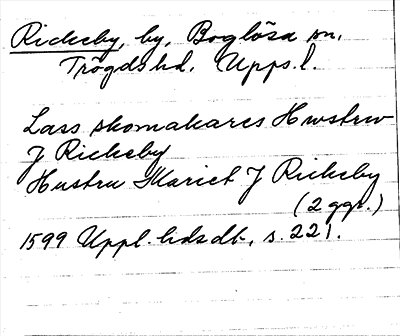 Rickeby, by, Boglösa sn,
Trögds hd. Upps. l.
Lass skomakares Hwstrw
J Rickeby
Hustru Mariet J Rickeby
(2 ggr.)
1599 Uppl. hdsdb, s. 221.